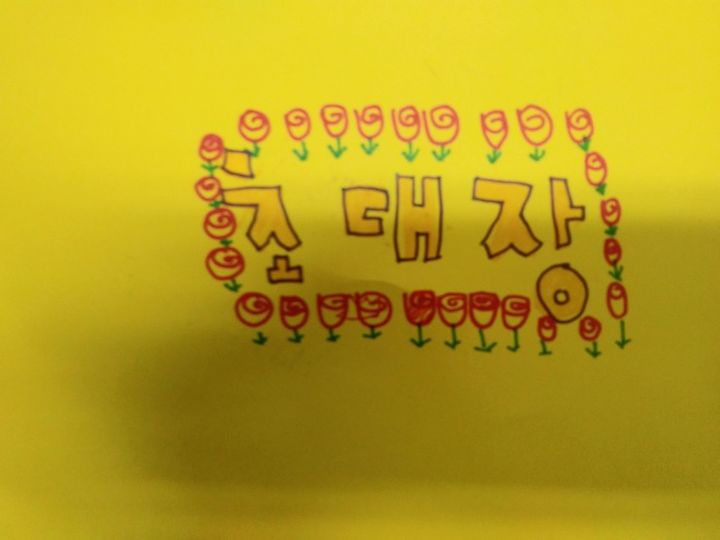 초대장